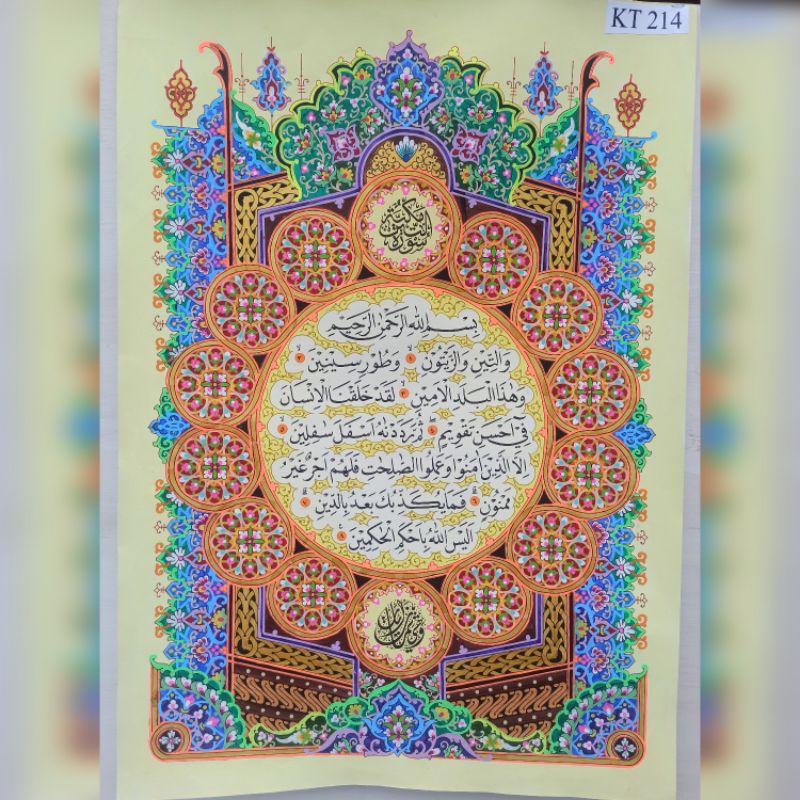 KT 214
سورة التين مكية
بِسْمِ اللهِ الرَّحْمٰنِ الرَّحِيْمِ
وَالتِّيْنِ وَالزَّيْتُوْنِ ١ وَطُوْرِ سِيْنِيْنَ ٢
وَهٰذَا الْبَلَدِ الْاَمِيْنِ ٣ لَقَدْ خَلَقْنَا الْاِنْسَانَ
فِيْ اَحْسَنِ تَقْوِيْمٍ ٤ ثُمَّ رَدَدْنٰهُ اَسْفَلَ سٰفِلِيْنَ ٥
اِلَّا الَّذِيْنَ اٰمَنُوْا وَعَمِلُوا الصّٰلِحٰتِ فَلَهُمْ اَجْرٌ غَيْرُ
مَمْنُوْنٍ ٦ فَمَا يُكَذِّبُكَ بَعْدُ بِالدِّيْنِ ٧
اَلَيْسَ اللهُ بِاَحْكَمِ الْحٰكِمِيْنَ ٨